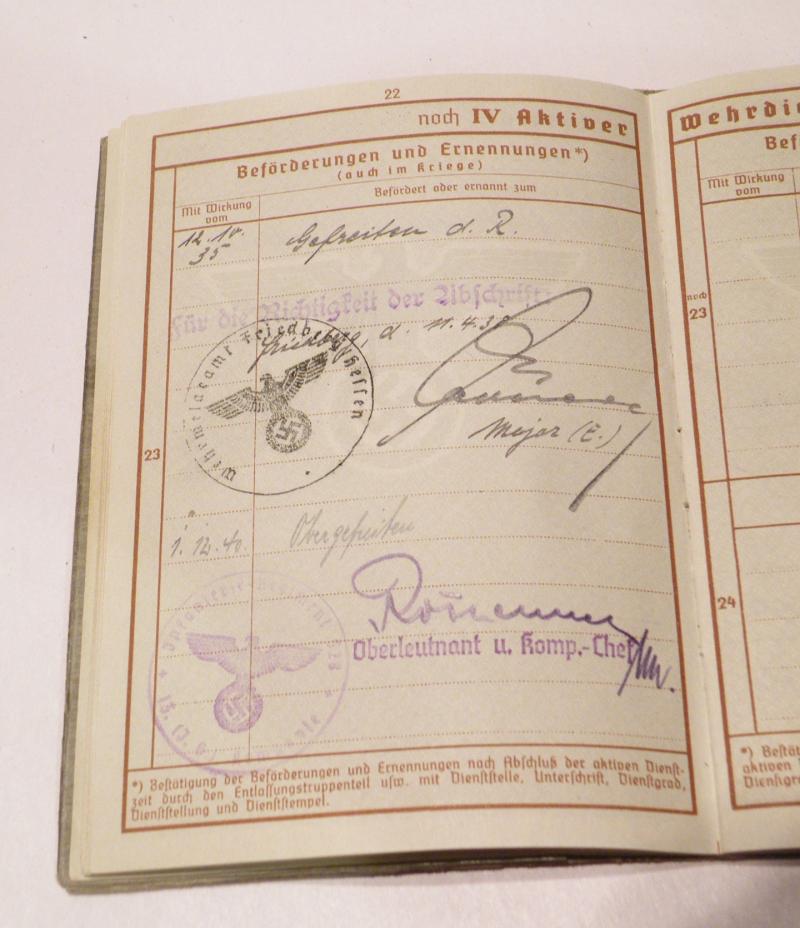 22
noch IV Aktiver
Beförderungen und Ernennungen*)
(auch im Kriege)
Mit Wirkung
vom
Befördert oder ernannt zum
12.10.
35
Gefreiten d. R.
Für die Richtigkeit der Abschrift:
Friedberg, d. 11.4.39
Wehrmeldeamt Friedberg Hessen
Major (E.)
23
1. 12. 40. Obergefreiten
Oberleutnant u. Komp.-Chef
*) Bestätigung der Beförderungen und Ernennungen nach Abschluß der aktiven Dienst-
zeit durch den Entlassungstruppenteil usw. mit Dienststelle, Unterschrift, Dienstgrad,
Dienststellung und Dienststempel.
Wehrdie
Bef
Mit Wirkung
vom
noch
23
24
*) Bestä
aktiven
Dienstgra